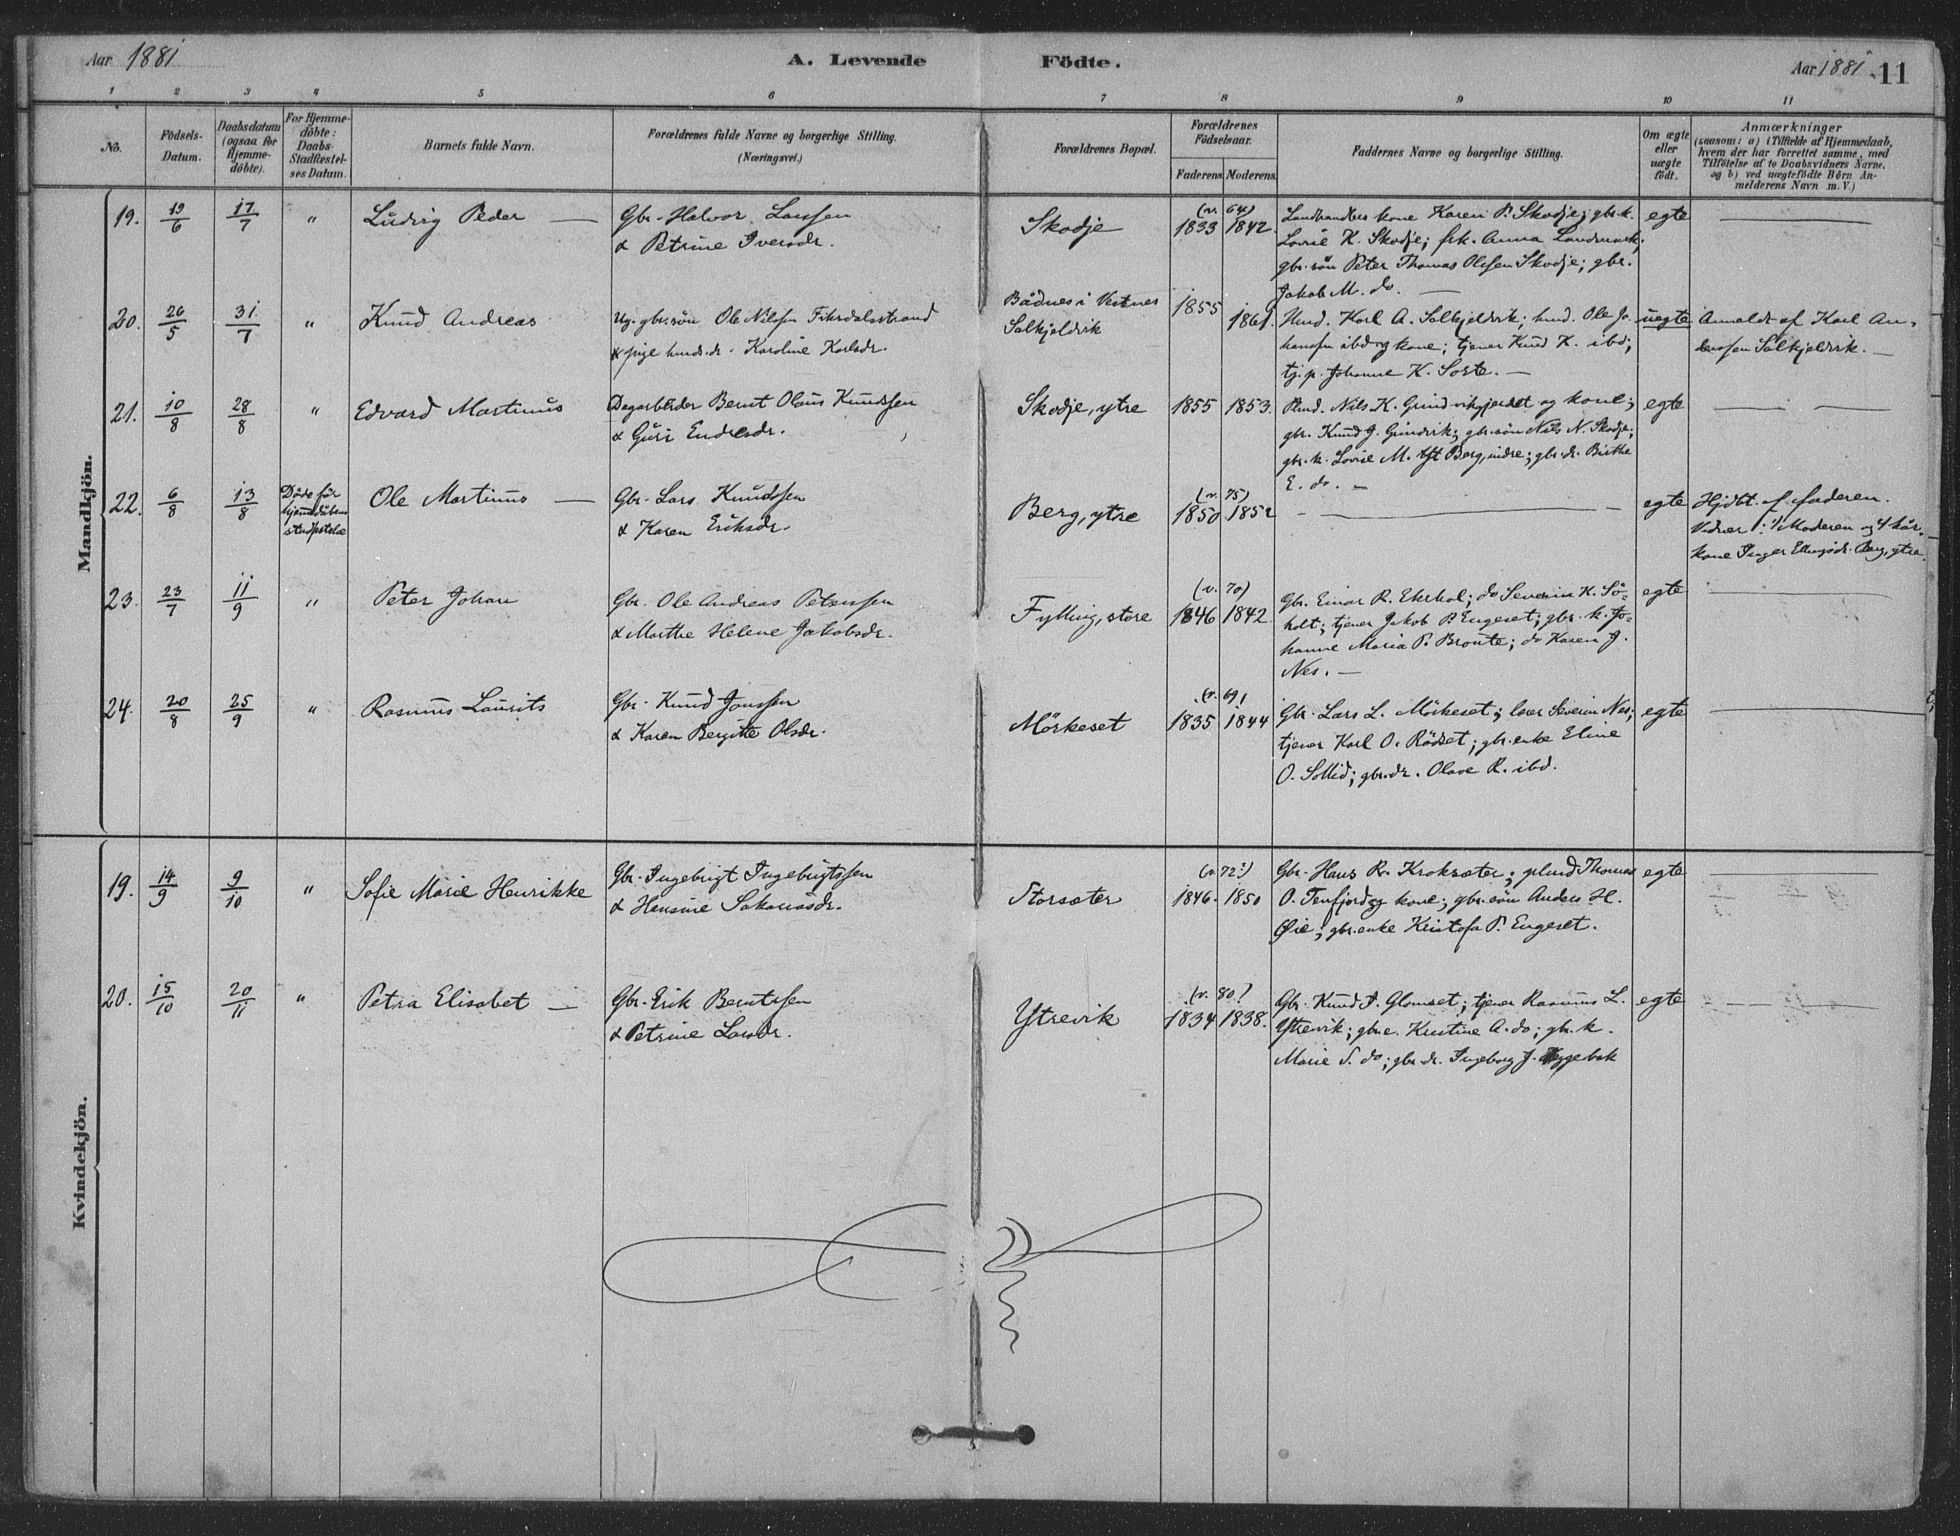 Aar 1881
A. Levende Födte.
Aar 1881 11
1 2 3 4 5 6 7 8 9 10 11
No.
Födsels-Datum.
Daabsdatum (ogsaa for Hjemme-döbte).
For Hjemme-döbte: Daabs-Stadfæstel-ses Datum.
Barnets fulde Navn.
Forældrenes fulde Navne og borgerlige Stilling.
(Næringsvei.)
Forældrenes Bopæl.
Forældrenes Födselsaar.
Faderens. Moderens.
Faddernes Navne og borgerlige Stilling.
Om ægte eller uægte födt.
Anmærkninger
(saasom: a) i Tilfælde af Hjemmedaab,
hvem der har forrettet samme, med
Tilföielse af to Daabsvidners Navne,
og b) ved uægtefödte Börn An-
melderens Navn m. V.)
Mandkjön.
19. 19/6 17/7 " Ludvig Peder —
Gbr. Halvor Larssen
& Petrine Iversdr.
Skodje
(v. 64)
1833 1842.
Landhandlers kone Karen P. Skodje; gbr.k.
Lovise K. Skodje; frk. Anna Landmark;
gbr.sön Peter Thomas Olesen Skodje; gbr.
Jakob M. do. —
egte
20. 26/5 31/7 " Knud Andreas
Ug. gbr.sön Ole Nilsen Fiksdalsstrand
& pige husd.dr. Karoline Karlsdr.
Bådnes i Vestnes
Solkjelsvik
1855 1861.
Husd. Karl A. Solkjelsvik; husd. Ole Jo-
hansen ibd og kone; tjener Knud K. ibd;
tj.p. Johanne K. Sorte. —
uegte
Anmeldt af Karl An-
derssen Solkjelsvik. —
21. 10/8 28/8 " Edvard Martinus
Dagarbeider Bernt Olaus Knudssen
& Guri Endresdr.
Skodje, ytre
1855 1853.
Plsd. Nils K. Grindvikgjerdet og kone;
gbr. Knud J. Grindvik; gbr.sön Nils N. Skodje;
gbr.k. Lovise M. Berg, indre; gbr.dr. Birthe
E. do. —
egte
22. 6/8 13/8 Döde för hjemmedåbens stadfæstelse
Ole Martinus —
Gbr. Lars Knudssen
& Karen Eriksdr.
Berg, ytre
(v. 75)
1850 1852
egte
Hjdbt. af faderen.
Vidner: Moderen og
kone Inger Ellingsdr. Berg, ytre.
23. 23/7 11/9 " Peter Johan
Gbr. Ole Andreas Peterssen
& Marthe Helene Jakobsdr.
Fylling, store
(v. 70)
1846 1842.
Gbr. Einar R. Ekrhol; do Severin K. Sö-
holt; tjener Jakob P. Engeset; gbr.k. Jo-
hanne Maria P. Bronte; do Karen J.
Nes. —
egte
24. 20/8 25/9 " Rasmus Laurits
Gbr. Knud Jonssen
& Karen Bergitte Olsdr.
Mörkeset
(v. 69)
1835 1844
Gbr. Lars L. Mörkeset; lærer Severin Nes;
tjener Karl O. Rödset; gbr.enke Eline
O. Sollid; gbr.dr. Olave R. ibd.
egte
Kvindekjön.
19. 14/9 9/10 " Sofie Marie Henrikke
Gbr. Ingebrigt Ingebrigtssen
& Hensine Sakariasdr.
Storsæter
(v. 72)
1846. 1850
Gbr. Hans R. Kroksæter; plmd Thomas
O. Tenfjord og kone; gbr.sön Anders H.
Øie; gbr.enke Kristofa P. Engeset.
egte
20. 15/10 20/11 " Petra Elisabet —
Gbr. Erik Berntssen
& Petrine Larsdr.
Ytrevik
(v. 80)
1834 1838.
Gbr. Knud P. Glomset; tjener Rasmus L.
Ytrevik; gbr.e. Kristine A. do; gbr.k.
Marie S. do; gbr.dr. Ingeborg J.
egte